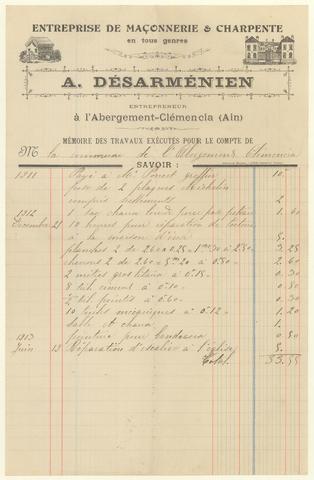 ENTREPRISE DE MAÇONNERIE & CHARPENTE
en tous genres
A. DÉSARMÉNIEN
ENTREPRENEUR
à l'Abergement-Clémencia (Ain)
MÉMOIRE DES TRAVAUX EXÉCUTÉS POUR LE COMPTE DE
M la commune de l'Abergement Clemencia
SAVOIR :
1911 Payé à Mr greffier 10
pose de 2 plaques Michelin
compris scellements 2
1912 1 sac chaux lourde pour 1.60
Décembre 21 10 heures pour réparation de toiture
à la maison 5
planches 2 de 3.25
chevrons 2 de à 0.80 2.60
2 mètres gros à 0.15 0.30
8 ciment à 0.10 0.80
½ pointes à 0.60 0.30
10 tuiles mécaniques à 0.12 1.20
sable et chaux 1.
1913 pour 0.50
Juin 13 Réparation d'escalier à l'église 5.
Total 33.55